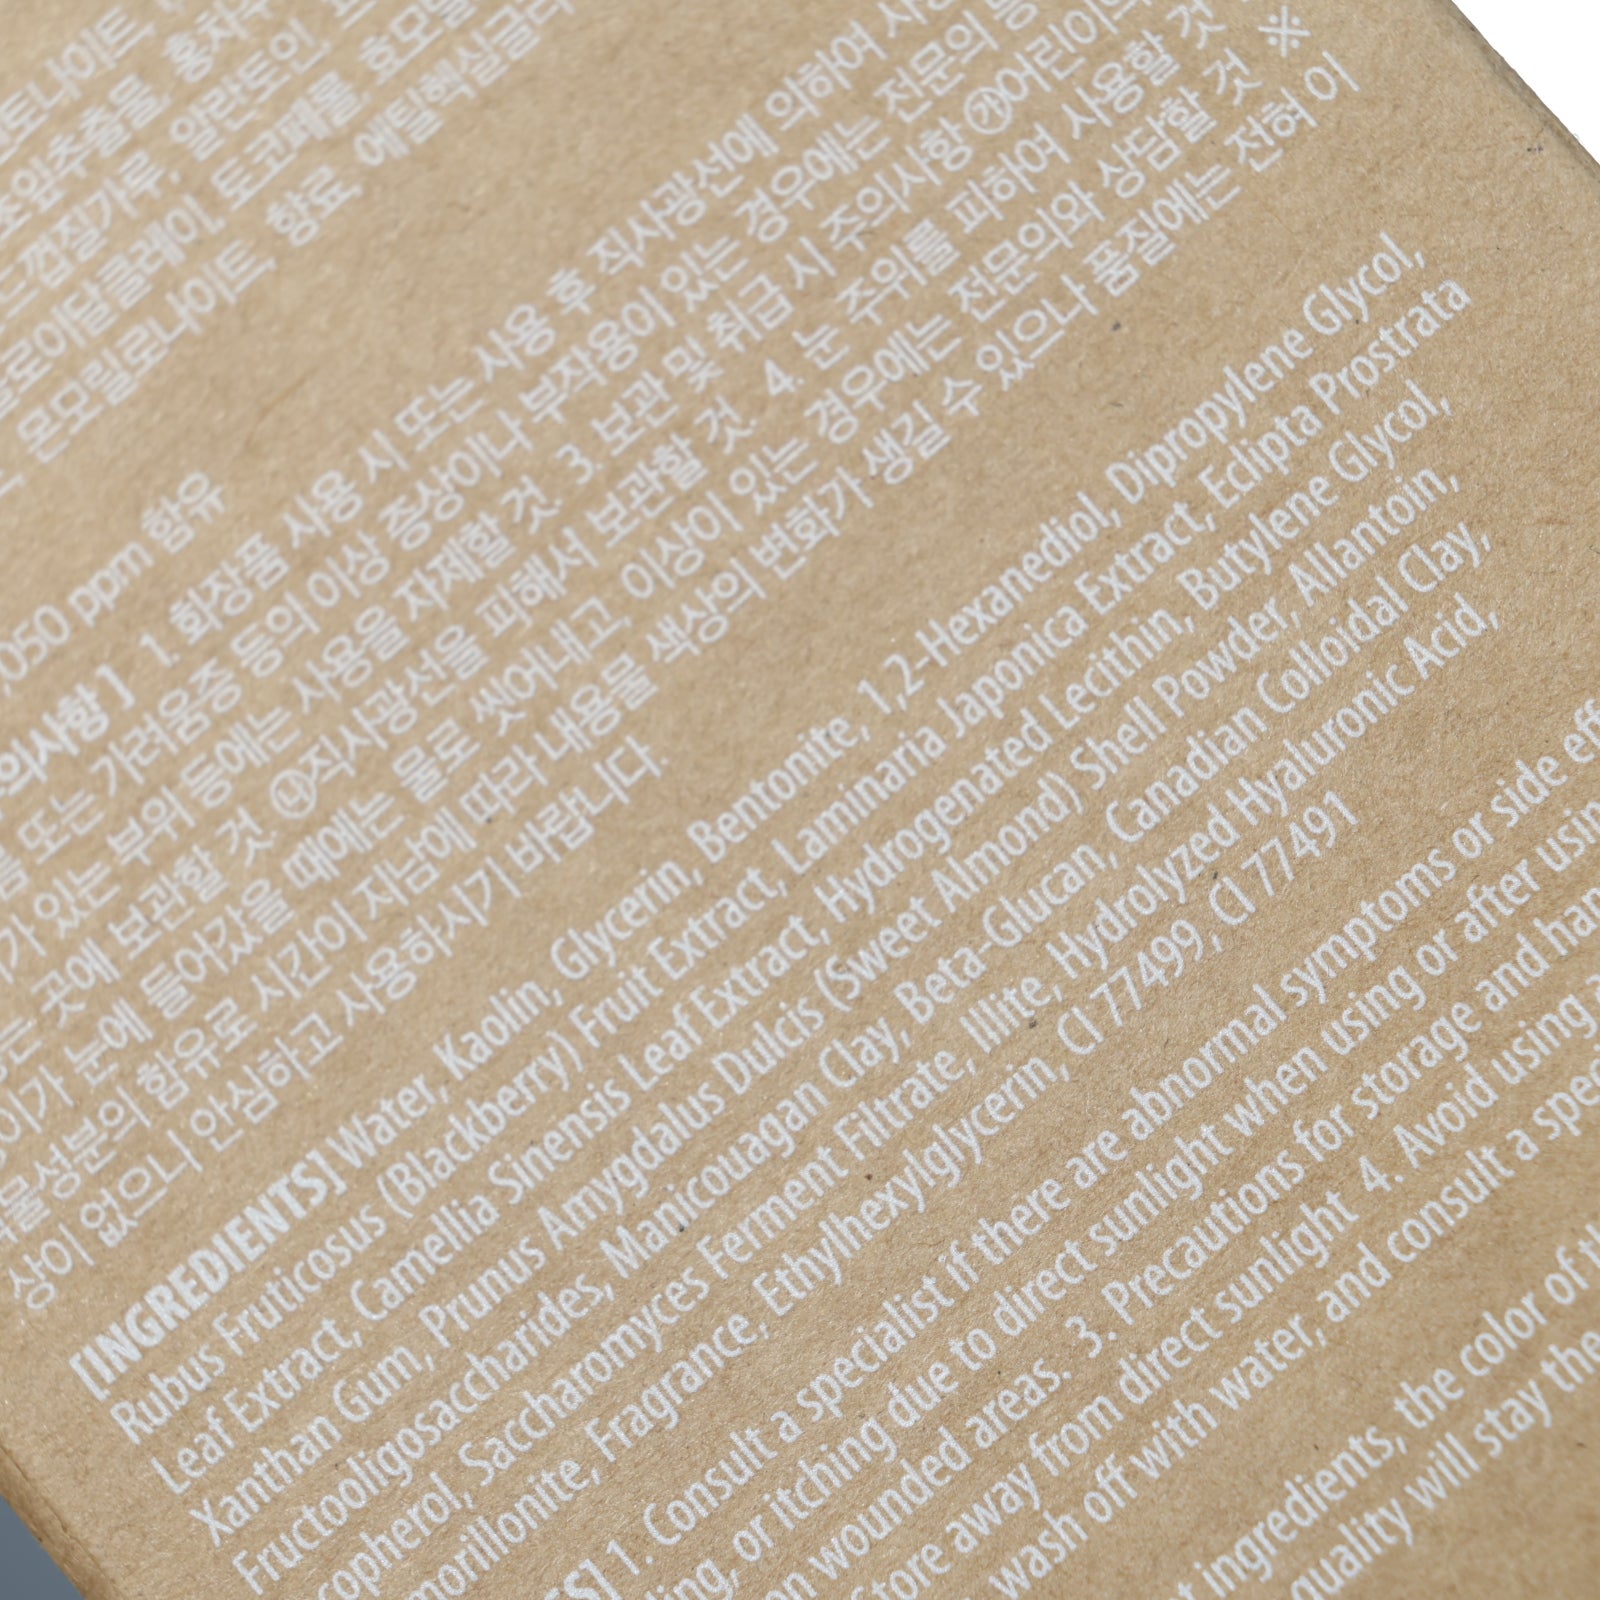 홍차추
초잎추출물,
느껍질가루, 알란토인,
로이달클레이, 토코페롤, 효모발
몬모릴로나이트, 향료, 에틸헥실글리
,050 ppm 함유
의사항 ] 1. 화장품 사용 시 또는 사용 후 직사광선에 의하여 사용
또는 가려움증 등의 이상 증상이나 부작용이 있는 경우에는 전문의 등
가 있는 부위 등에는 사용을 자제할 것. 3. 보관 및 취급 시 주의사항 ㉮어린이의
는 곳에 보관할 것. ㉯직사광선을 피해서 보관할 것. 4. 눈 주위를 피하여 사용할 것
이가 눈에 들어갔을 때에는 물로 씻어내고, 이상이 있는 경우에는 전문의와 상담할 것 ※
물성분의 함유로 시간이 지남에 따라 내용물 색상의 변화가 생길 수 있으나 품질에는 전혀 이
상이 없으니 안심하고 사용하시기 바랍니다.
[INGREDIENTS] Water, Kaolin, Glycerin, Bentonite, 1,2-Hexanediol, Dipropylene Glycol,
Rubus Fruticosus (Blackberry) Fruit Extract, Laminaria Japonica Extract, Eclipta Prostrata
Leaf Extract, Camellia Sinensis Leaf Extract, Hydrogenated Lecithin, Butylene Glycol,
Xanthan Gum, Prunus Amygdalus Dulcis (Sweet Almond) Shell Powder, Allantoin,
Fructooligosaccharides, Manicouagan Clay, Beta-Glucan, Canadian Colloidal Clay,
copherol, Saccharomyces Ferment Filtrate, Illite, Hydrolyzed Hyaluronic Acid,
morillonite, Fragrance, Ethylhexylglycerin, CI 77499, CI 77491
ES] 1. Consult a specialist if there are abnormal symptoms or side eff
ling, or itching due to direct sunlight when using or after using
on wounded areas. 3. Precautions for storage and han
Store away from direct sunlight 4. Avoid using a
wash off with water, and consult a speci
t ingredients, the color of th
quality will stay the